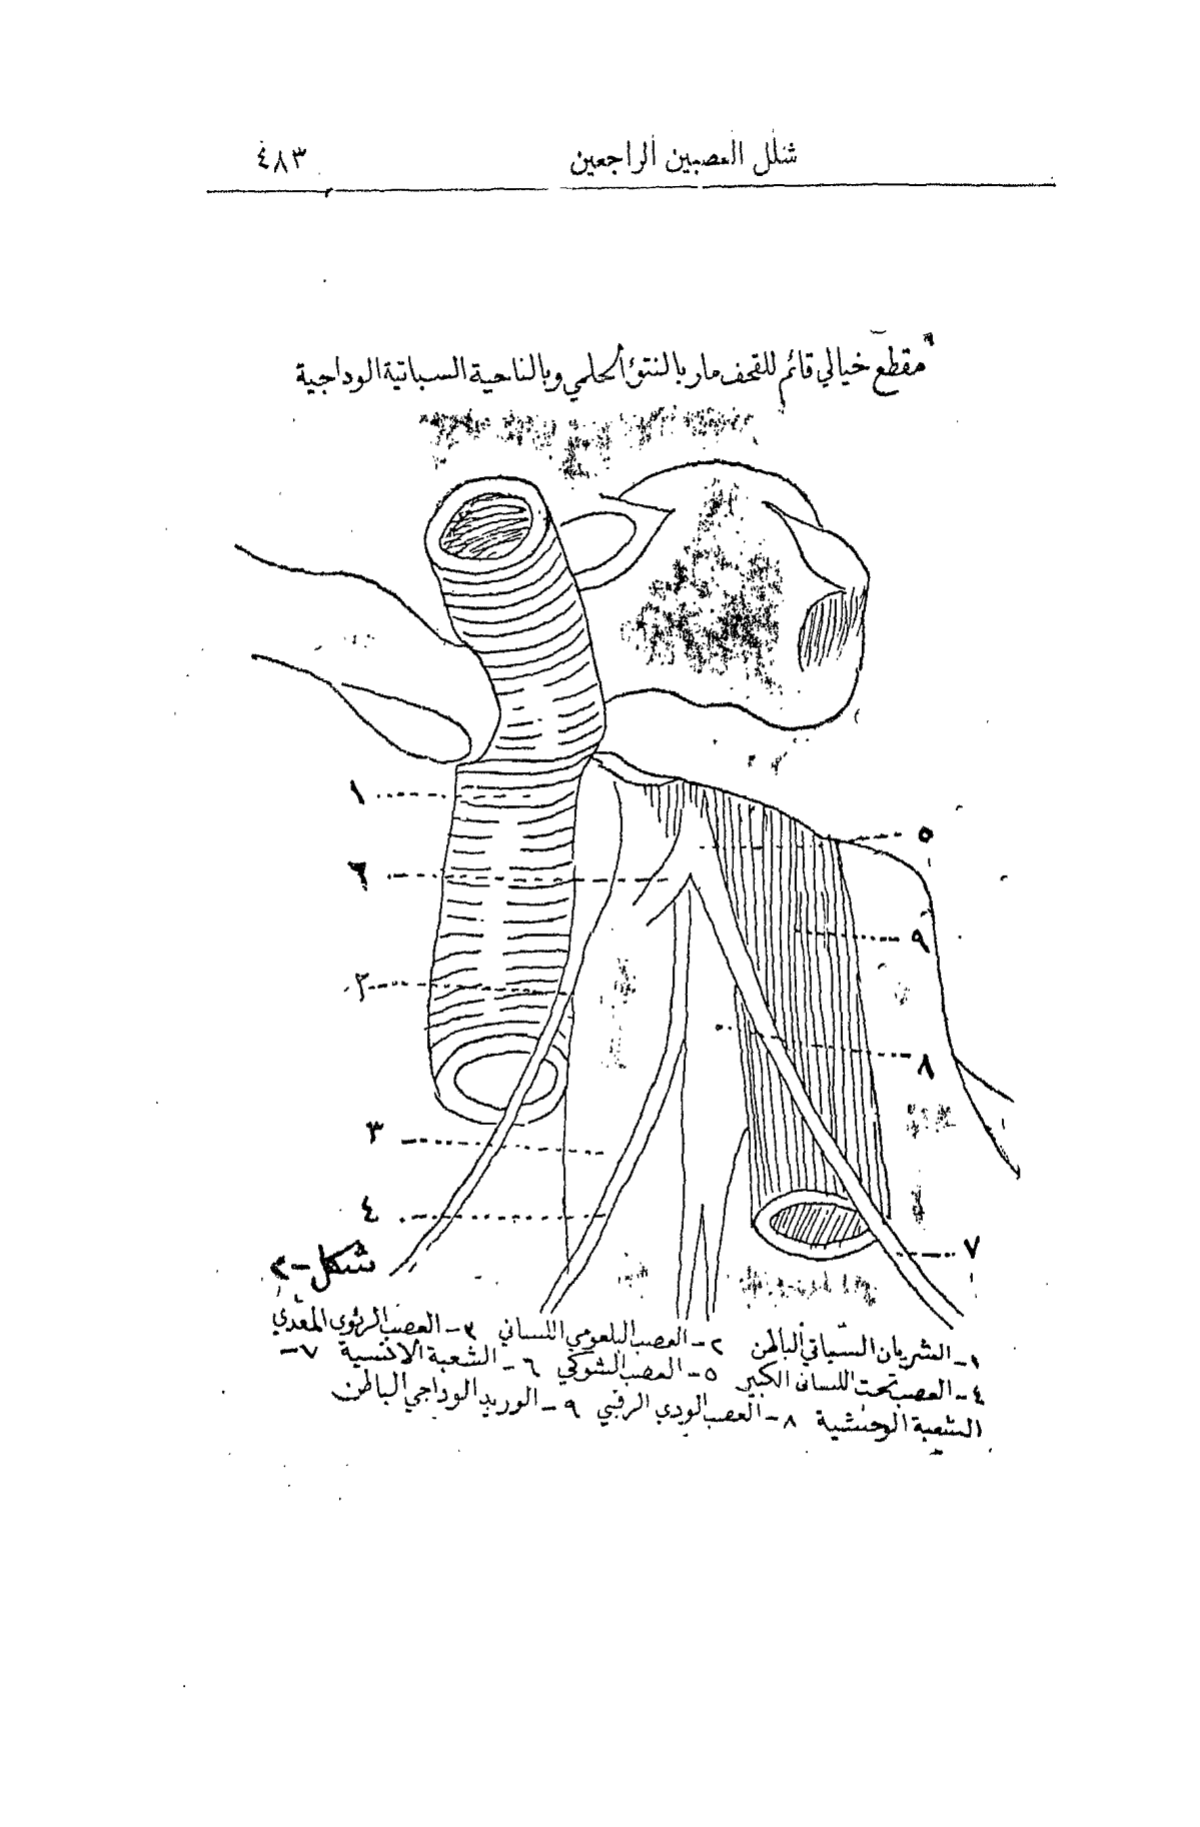 شلل العصبين الراجعين ٤٨٣
مقطع خيالي قائم للقحف مار بالنتوء الحلمي وبالناحية السباتية الوداجية
١
٥
٦
٩
٢
٨
٣
٤
٧
شكل -٢
١- الشريان السباتي الباطن ٢- العصب البلعومي اللساني ٣- العصب الرئوي المعدي
٤- العصب تحت اللساني الكبير ٥- العصب الشوكي ٦- الشعبة الانسية ٧-
الشعبة الوحشية ٨- العصب الودي الرقبي ٩- الوريد الوداجي الباطن